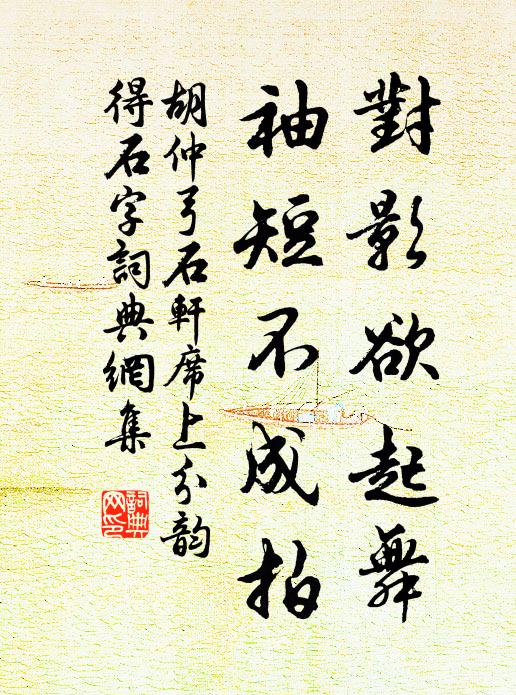 對影欲起舞
袖短不成拍
胡仲弓石軒席上分韵
得石字詞典網集
詞典
网印